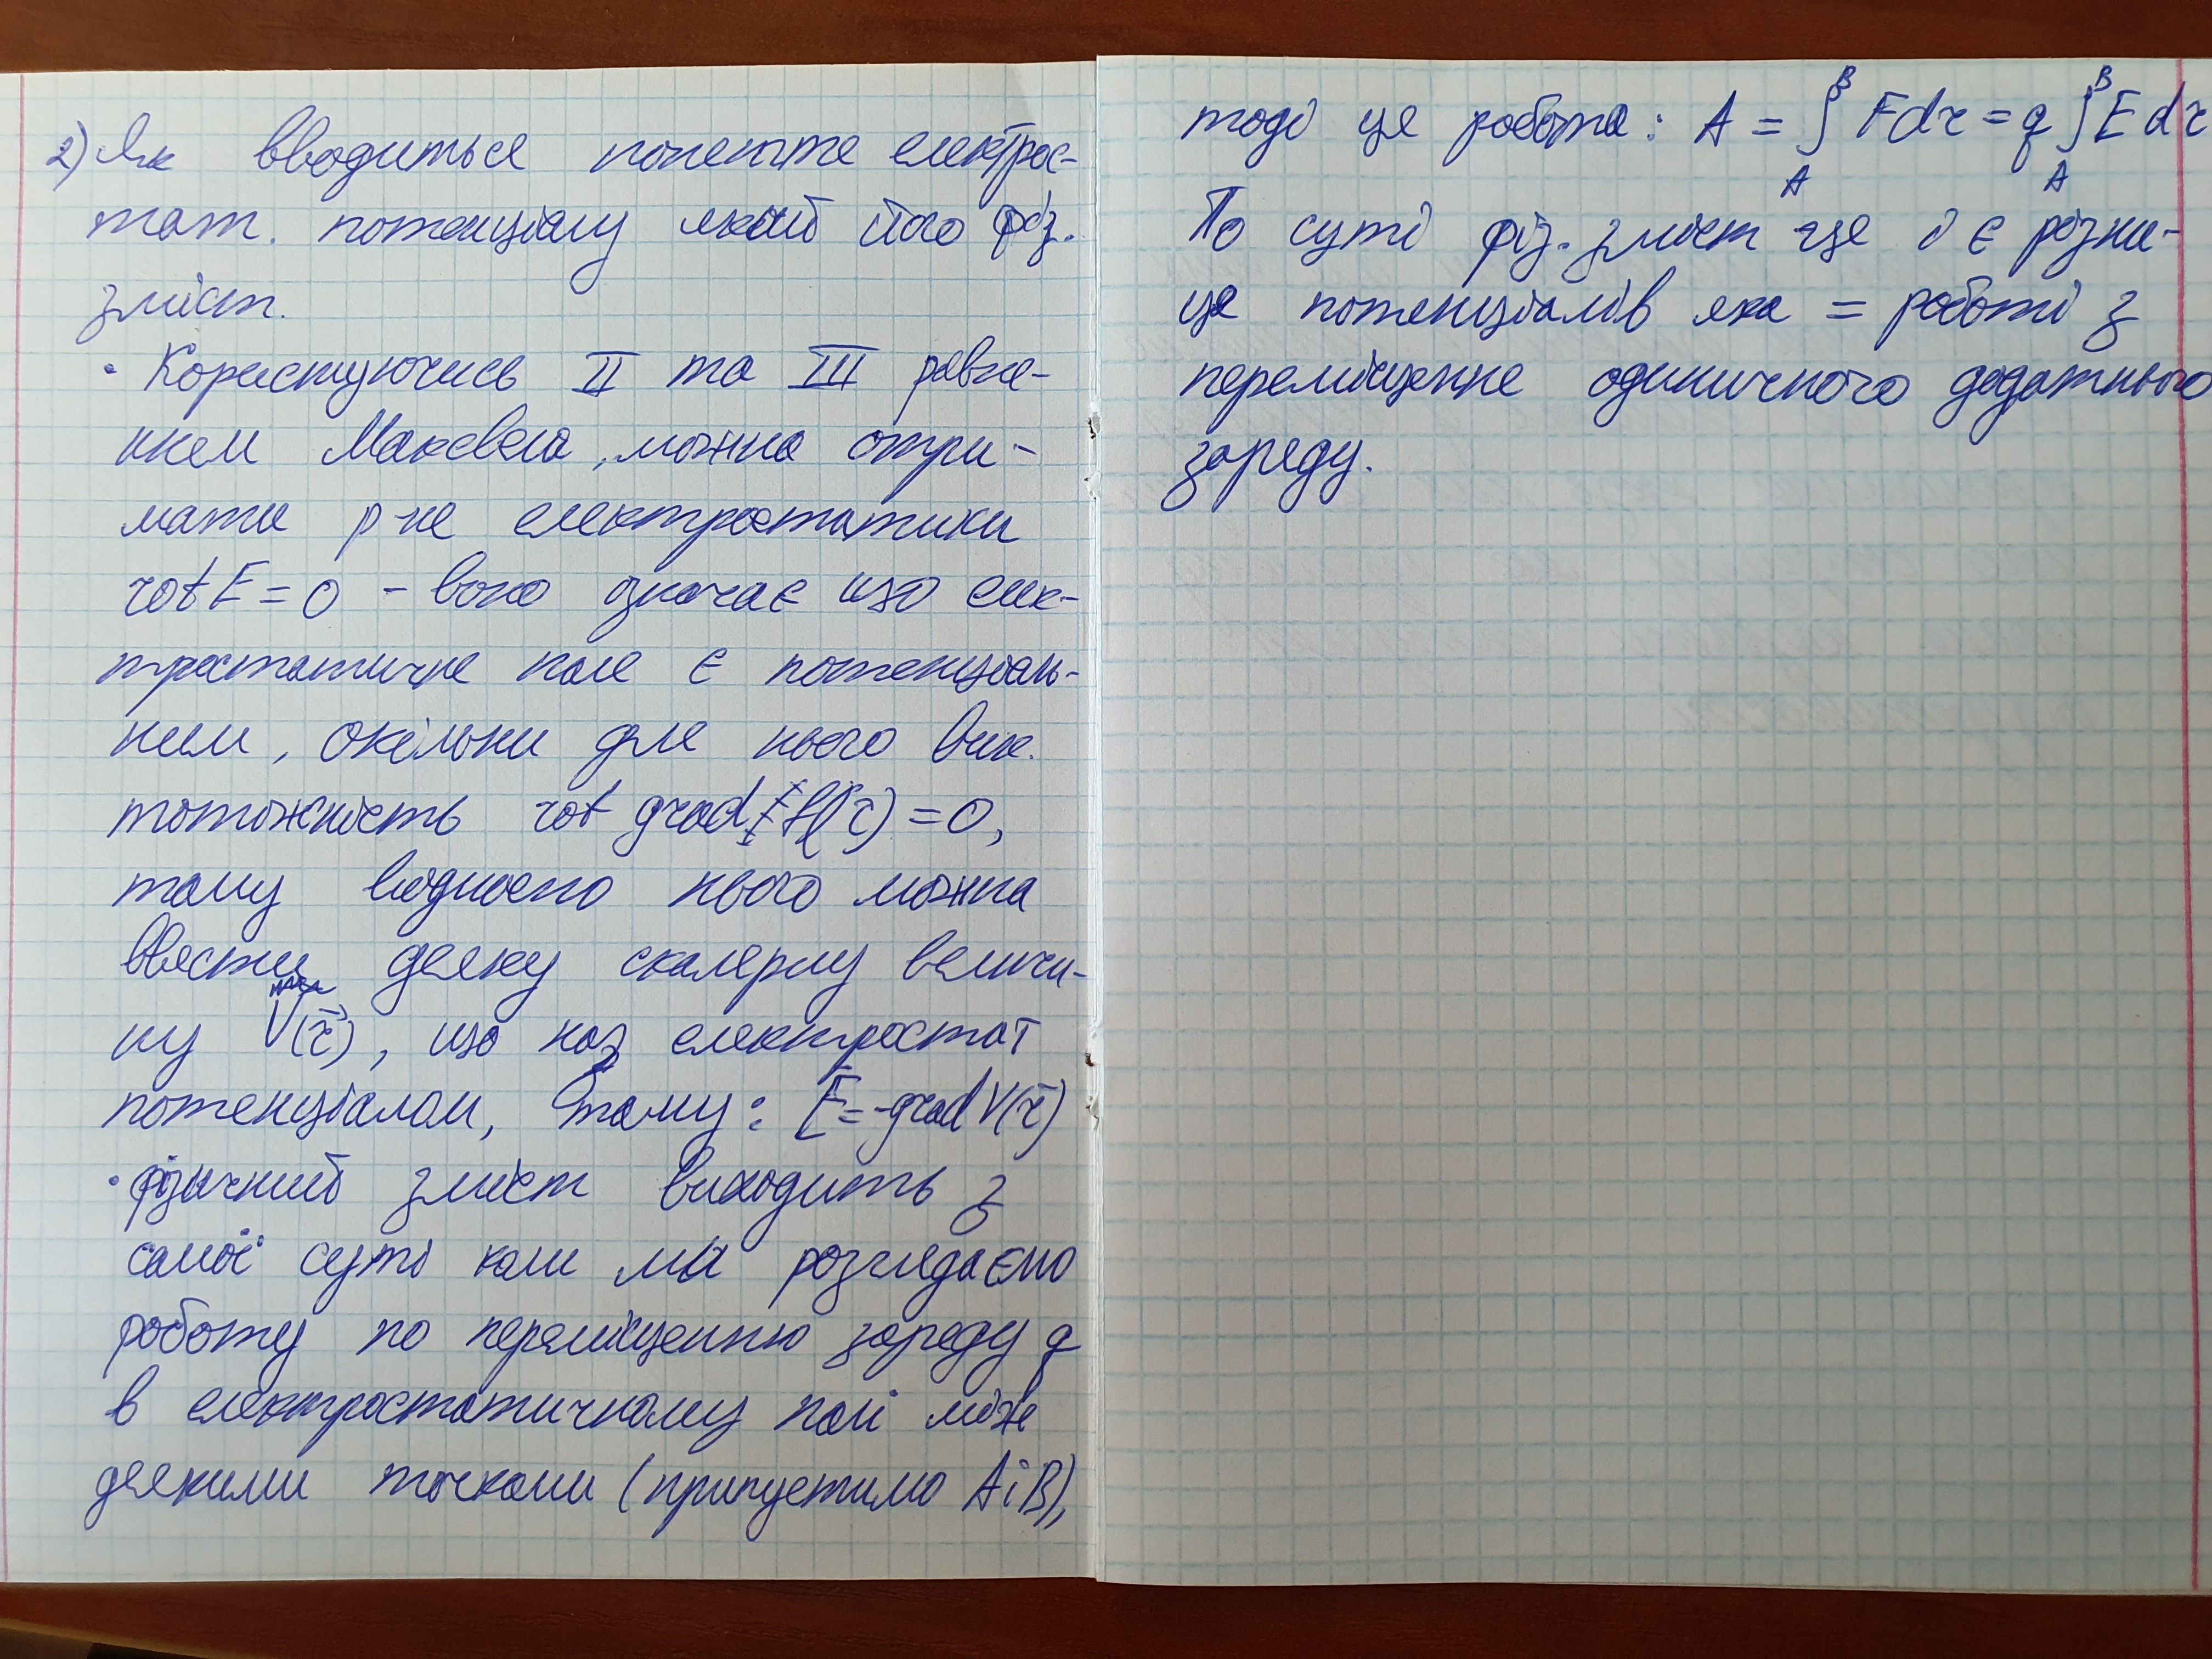 2) Як вводиться поняття електрос-
тат. потенціалу який його фіз.
зміст.
· Користуючись II та III рівня-
ням Максвела, можна отри-
мати р-не електростатики
rot E = 0 - воно означає що елек-
тростатичне поле є потенціаль-
ним, оскільки для нього вик.
тотожність rot grad f(r) = 0,
тому виходячи з нього можна
ввести деяку скалярну величи-
ну V(r), що наз електростат
потенціалом, тому: E = -grad V(r)
· фізичний зміст виходить з
самої суті коли ми розглядаємо
роботу по переміщенню заряду q
в електростатичному полі між
деякими точками (припустимо A і B)
тоді ця робота: A = ∫ₐᴮ F dr = q ∫ₐᴮ E dr
По суті фіз. зміст це і є різни-
ця потенціалів яка = роботі з
переміщення одиничного додатнього
заряду.